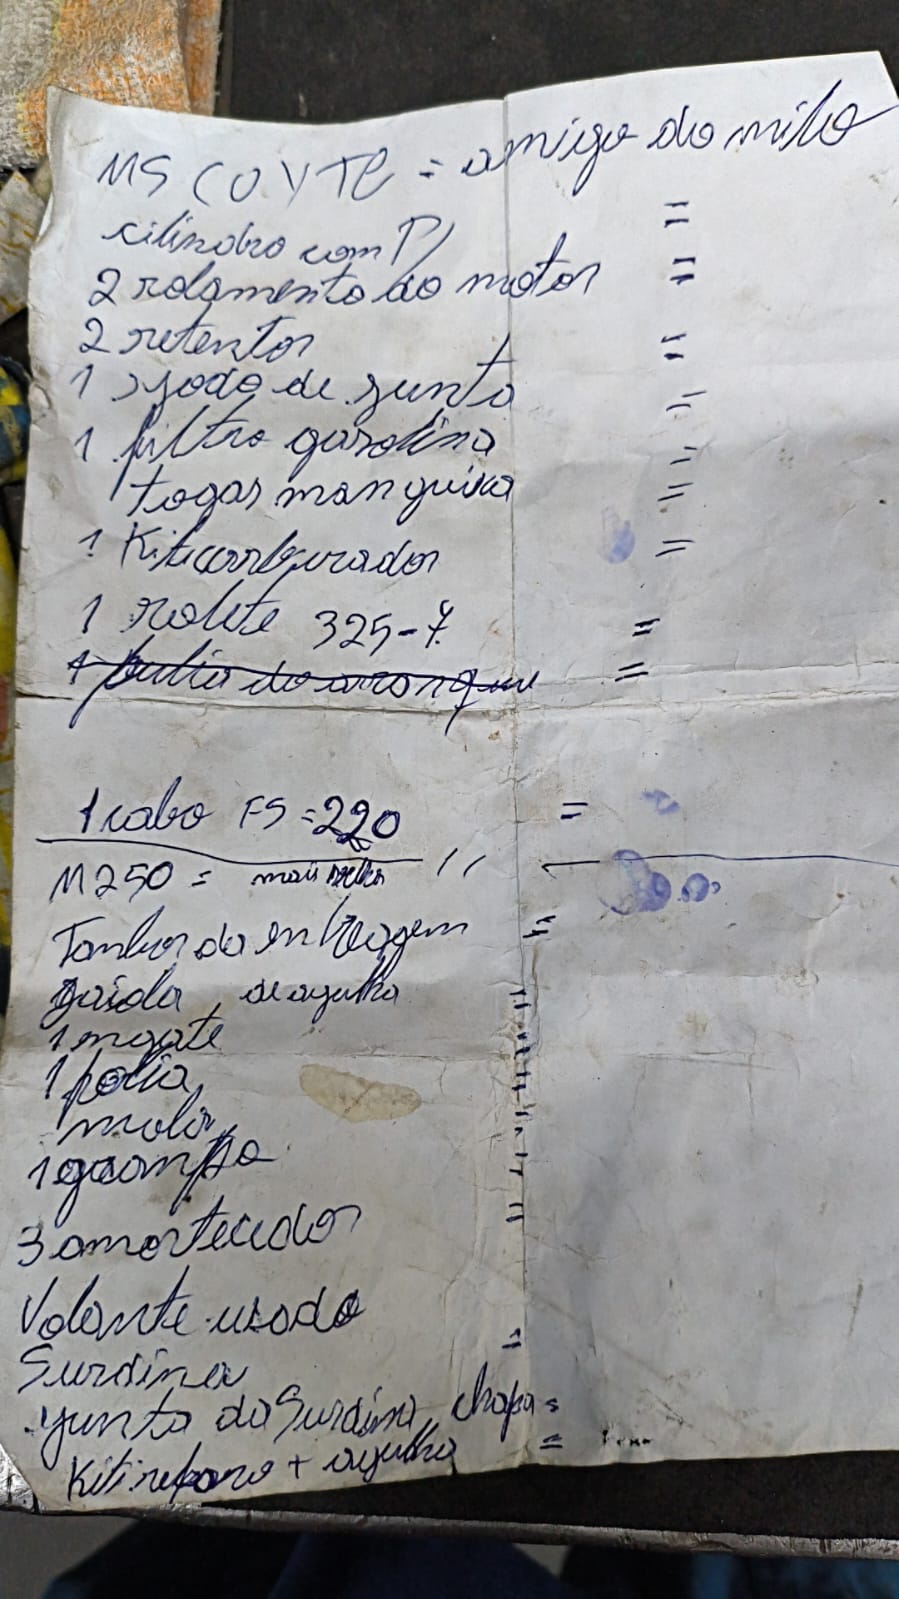 MS COYTE = amigo do milo
cilindro com P/ =
2 rolamento do motor =
2 retentor =
1 jogo de junta =
1 filtro gasolina =
togar manguira =
1 Kiticarburador =
1 rolete 325-7. =
1 pulia do aronque =
1 cabo FS = 220 =
M250 = mais
Tambor da embreagem "
gaiola de agulha "
1 engate "
1 polia "
mola
1 grampo "
3 amortecedor "
Volante usado
Surdina =
junta da Surdina, chapa =
Kiti reparo + agulha =